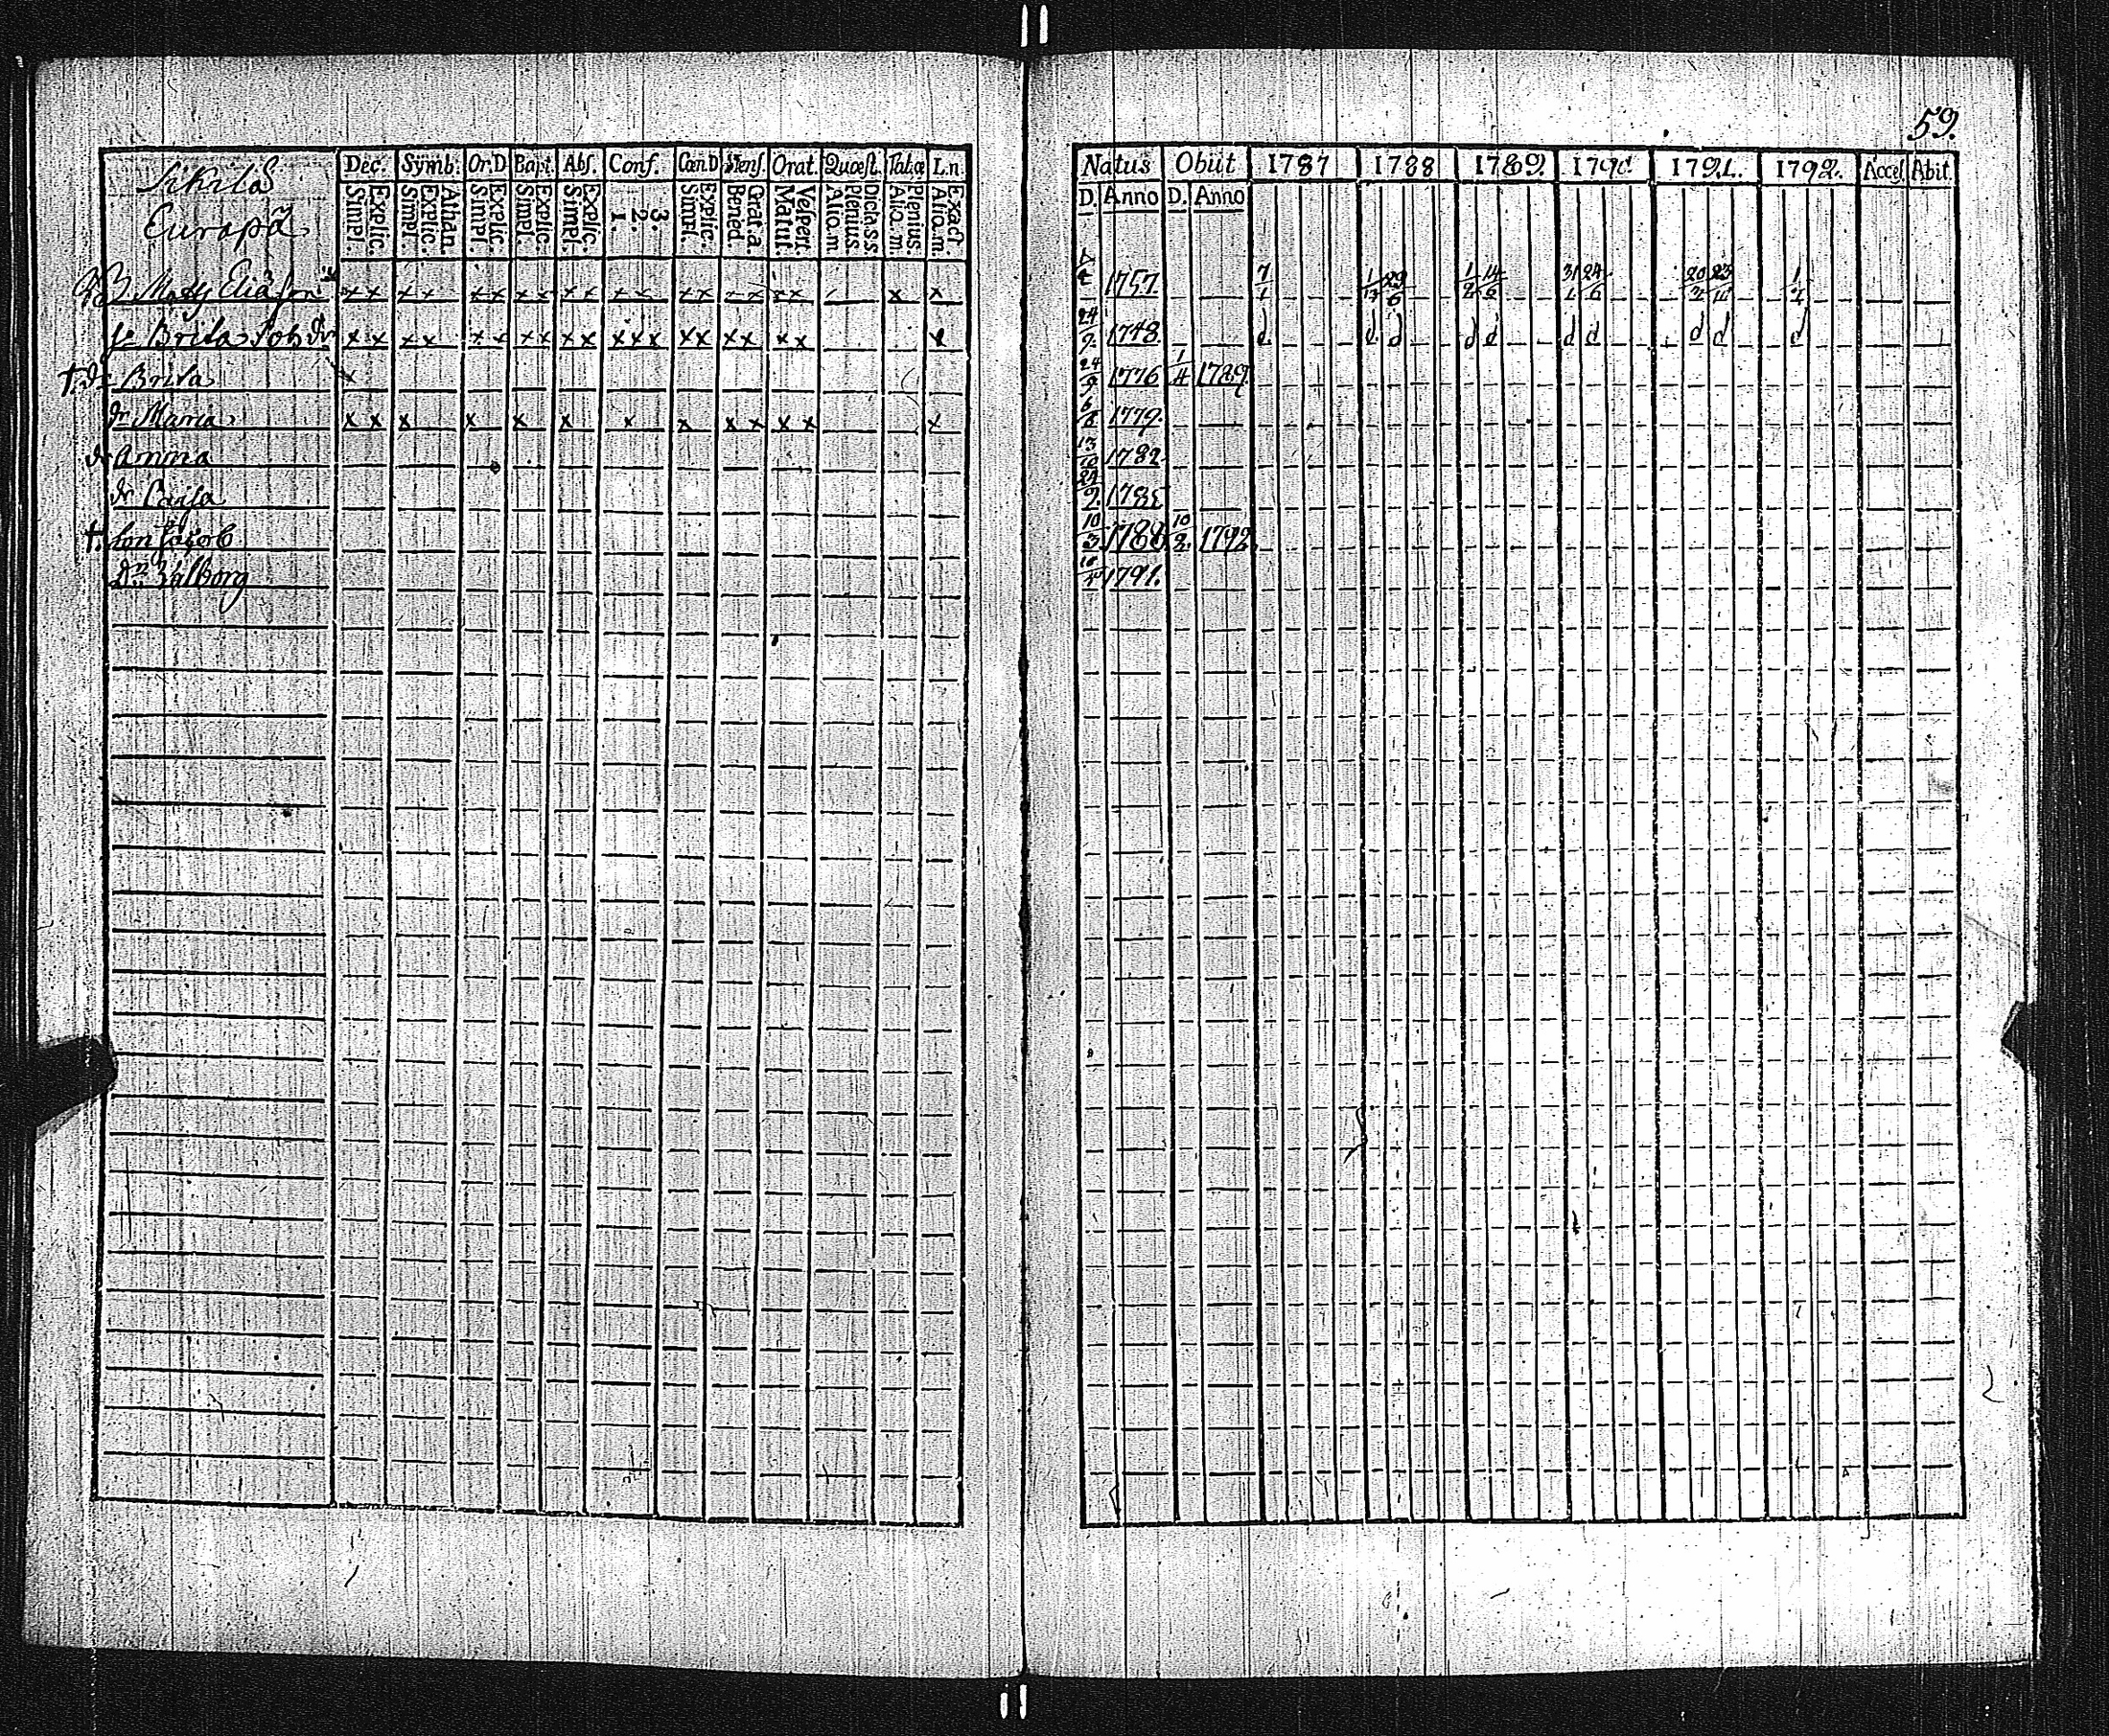 59.
Sikilä
Europa
Dec. Symb. Or.D Bapt. Abs. Conf. Cœn.D Mens. Orat. Quæst. Tabūœ L.n
Simpl. Explic. Simpl. Explic. Athan. Simpl. Explic. Simpl. Explic. Simpl. Explic. 1. 2. 3. Simpl. Explic. Bened. Grat.a. Matut. Vespert. Alio.m Plenius. Dicta.s.s Alio.m. Plenius. Alio.m. Exact
Natus Obiit 1787 1788 1789. 1790. 1791. 1792. Acces Abit.
D. Anno D. Anno
Matts Eliasson x x x x x x x x x x x x x x 1757 7/1 1/13 29/6 1/2 14/6 31/1 24/6 20/2 23/4 1/2
h: Brita Joh dr x x x x x x x x x x x x x x x x x x x x 24/9. 1748. d. d. d d d d d d d d
†. dr Brita x 24/9 1776 1/4 1789.
dr Maria x x x x x x x x x x x x x 6/8 1779.
dr Anna 13/10 1782
dr Caisa 24/9. 1785
†. son Jacob 10/3 1788 10/2. 1792.
Dr. Valborg 1791.